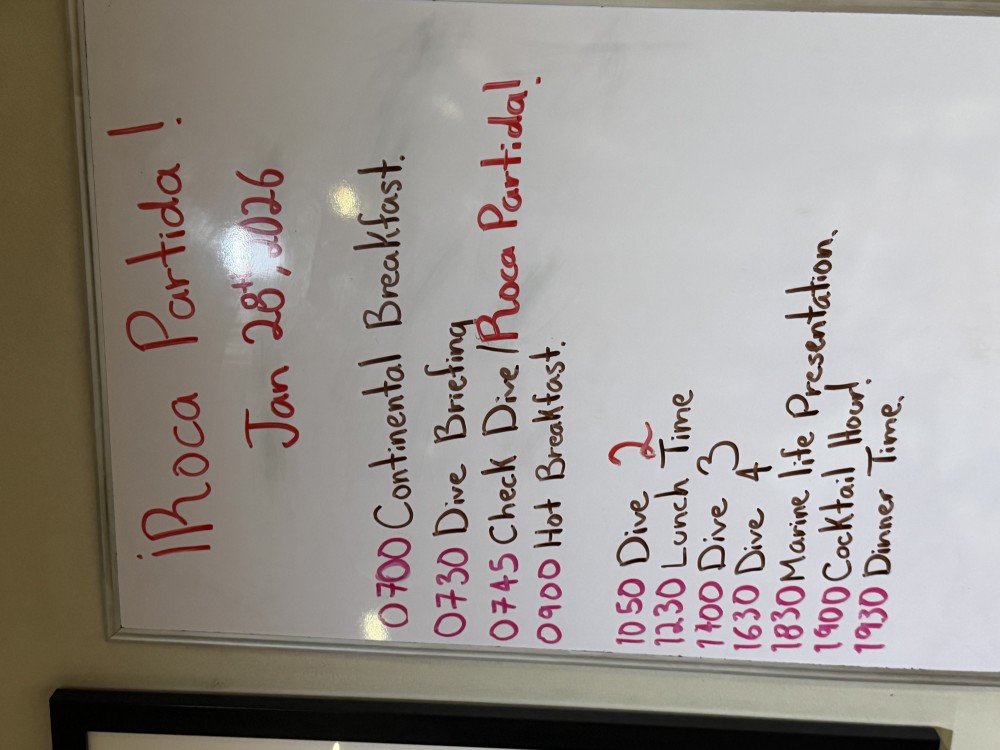 ¡Roca Partida!
Jan 28th, 2026
0700 Continental Breakfast.
0730 Dive Briefing
0745 Check Dive / Roca Partida!
0900 Hot Breakfast.
1050 Dive 2
1230 Lunch Time
1400 Dive 3
1630 Dive 4
1830 Marine life Presentation.
1900 Cocktail Hour!
1930 Dinner Time.